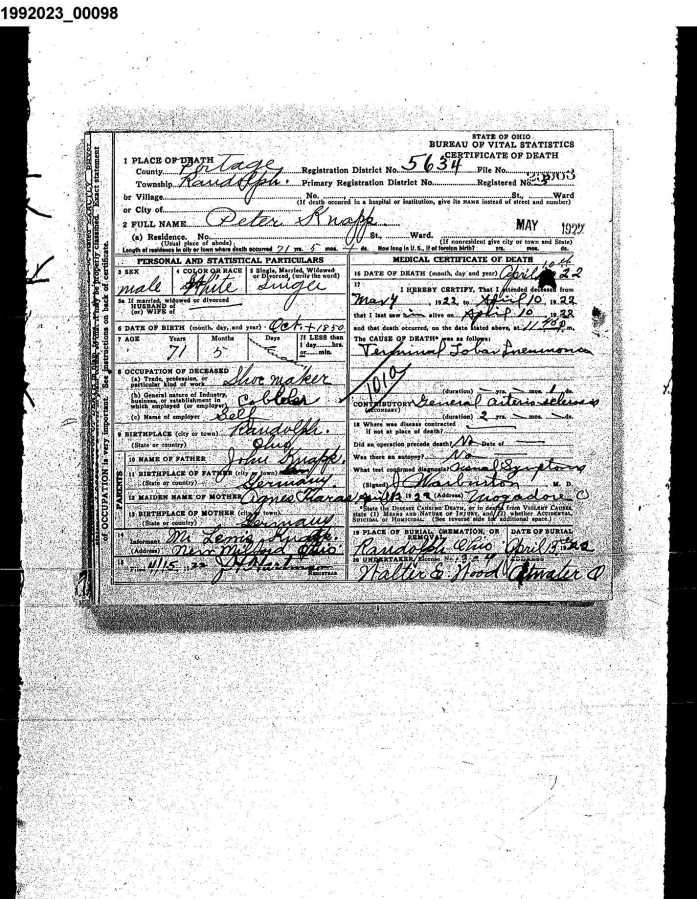 1992023_00098
STATE OF OHIO
BUREAU OF VITAL STATISTICS
CERTIFICATE OF DEATH
1 PLACE OF DEATH
County Portage Registration District No. 5634 File No.
Township Randolph. Primary Registration District No. Registered No.
or Village No. St., Ward
(If death occurred in a hospital or institution, give its NAME instead of street and number)
or City of
2 FULL NAME Peter Knapp
MAY 1922
(a) Residence. No. St., Ward.
(Usual place of abode) (If nonresident give city or town and State)
Length of residence in city or town where death occurred 71 yrs. 5 mos. ds. How long in U.S., if of foreign birth? yrs. mos. ds.
PERSONAL AND STATISTICAL PARTICULARS
3 SEX 4 COLOR OR RACE 5 Single, Married, Widowed or Divorced, (write the word)
male White Single
5a If married, widowed or divorced
HUSBAND of
(or) WIFE of
6 DATE OF BIRTH (month, day, and year) Oct. 4 1850
7 AGE Years Months Days If LESS than
1 day hrs.
or min.
71 5
8 OCCUPATION OF DECEASED
(a) Trade, profession, or
particular kind of work Shoe maker
(b) General nature of industry,
business, or establishment in
which employed (or employer) Cobbler
(c) Name of employer Self
9 BIRTHPLACE (city or town) Randolph.
(State or country) Ohio
PARENTS
10 NAME OF FATHER John Knapp.
11 BIRTHPLACE OF FATHER (city or town)
(State or country) Germany.
12 MAIDEN NAME OF MOTHER Agnes
13 BIRTHPLACE OF MOTHER (city or town)
(State or country) Germany
14
Informant Mr Lewis Knapp.
(Address) New Milford Ohio
15
Filed 4/15, 1922 J. H. Hartman
REGISTRAR
MEDICAL CERTIFICATE OF DEATH
16 DATE OF DEATH (month, day and year) April 10th 22
17
I HEREBY CERTIFY, That I attended deceased from
May, 1922, to April 10, 1922
that I last saw alive on April 10, 1922
and that death occurred, on the date stated above, at m.
The CAUSE OF DEATH* was as follows:
Terminal Lobar Pneumonia
1010
(duration) yrs. mos. ds.
CONTRIBUTORY General arterio sclerosis
(SECONDARY)
(duration) 2 yrs. mos. ds.
18 Where was disease contracted
if not at place of death?
Did an operation precede death? No Date of
Was there an autopsy? No
What test confirmed diagnosis? Usual Symptoms
(Signed) J Warburton M. D.
1922 (Address) Mogadore O
*State the DISEASE CAUSING DEATH, or in deaths from VIOLENT CAUSES,
state (1) MEANS AND NATURE OF INJURY, and (2) whether ACCIDENTAL,
SUICIDAL or HOMICIDAL. (See reverse side for additional space.)
19 PLACE OF BURIAL, CREMATION, OR REMOVAL DATE OF BURIAL
Randolph Ohio April 1922
20 UNDERTAKER, License No. ADDRESS
Walter E. Wood Atwater O